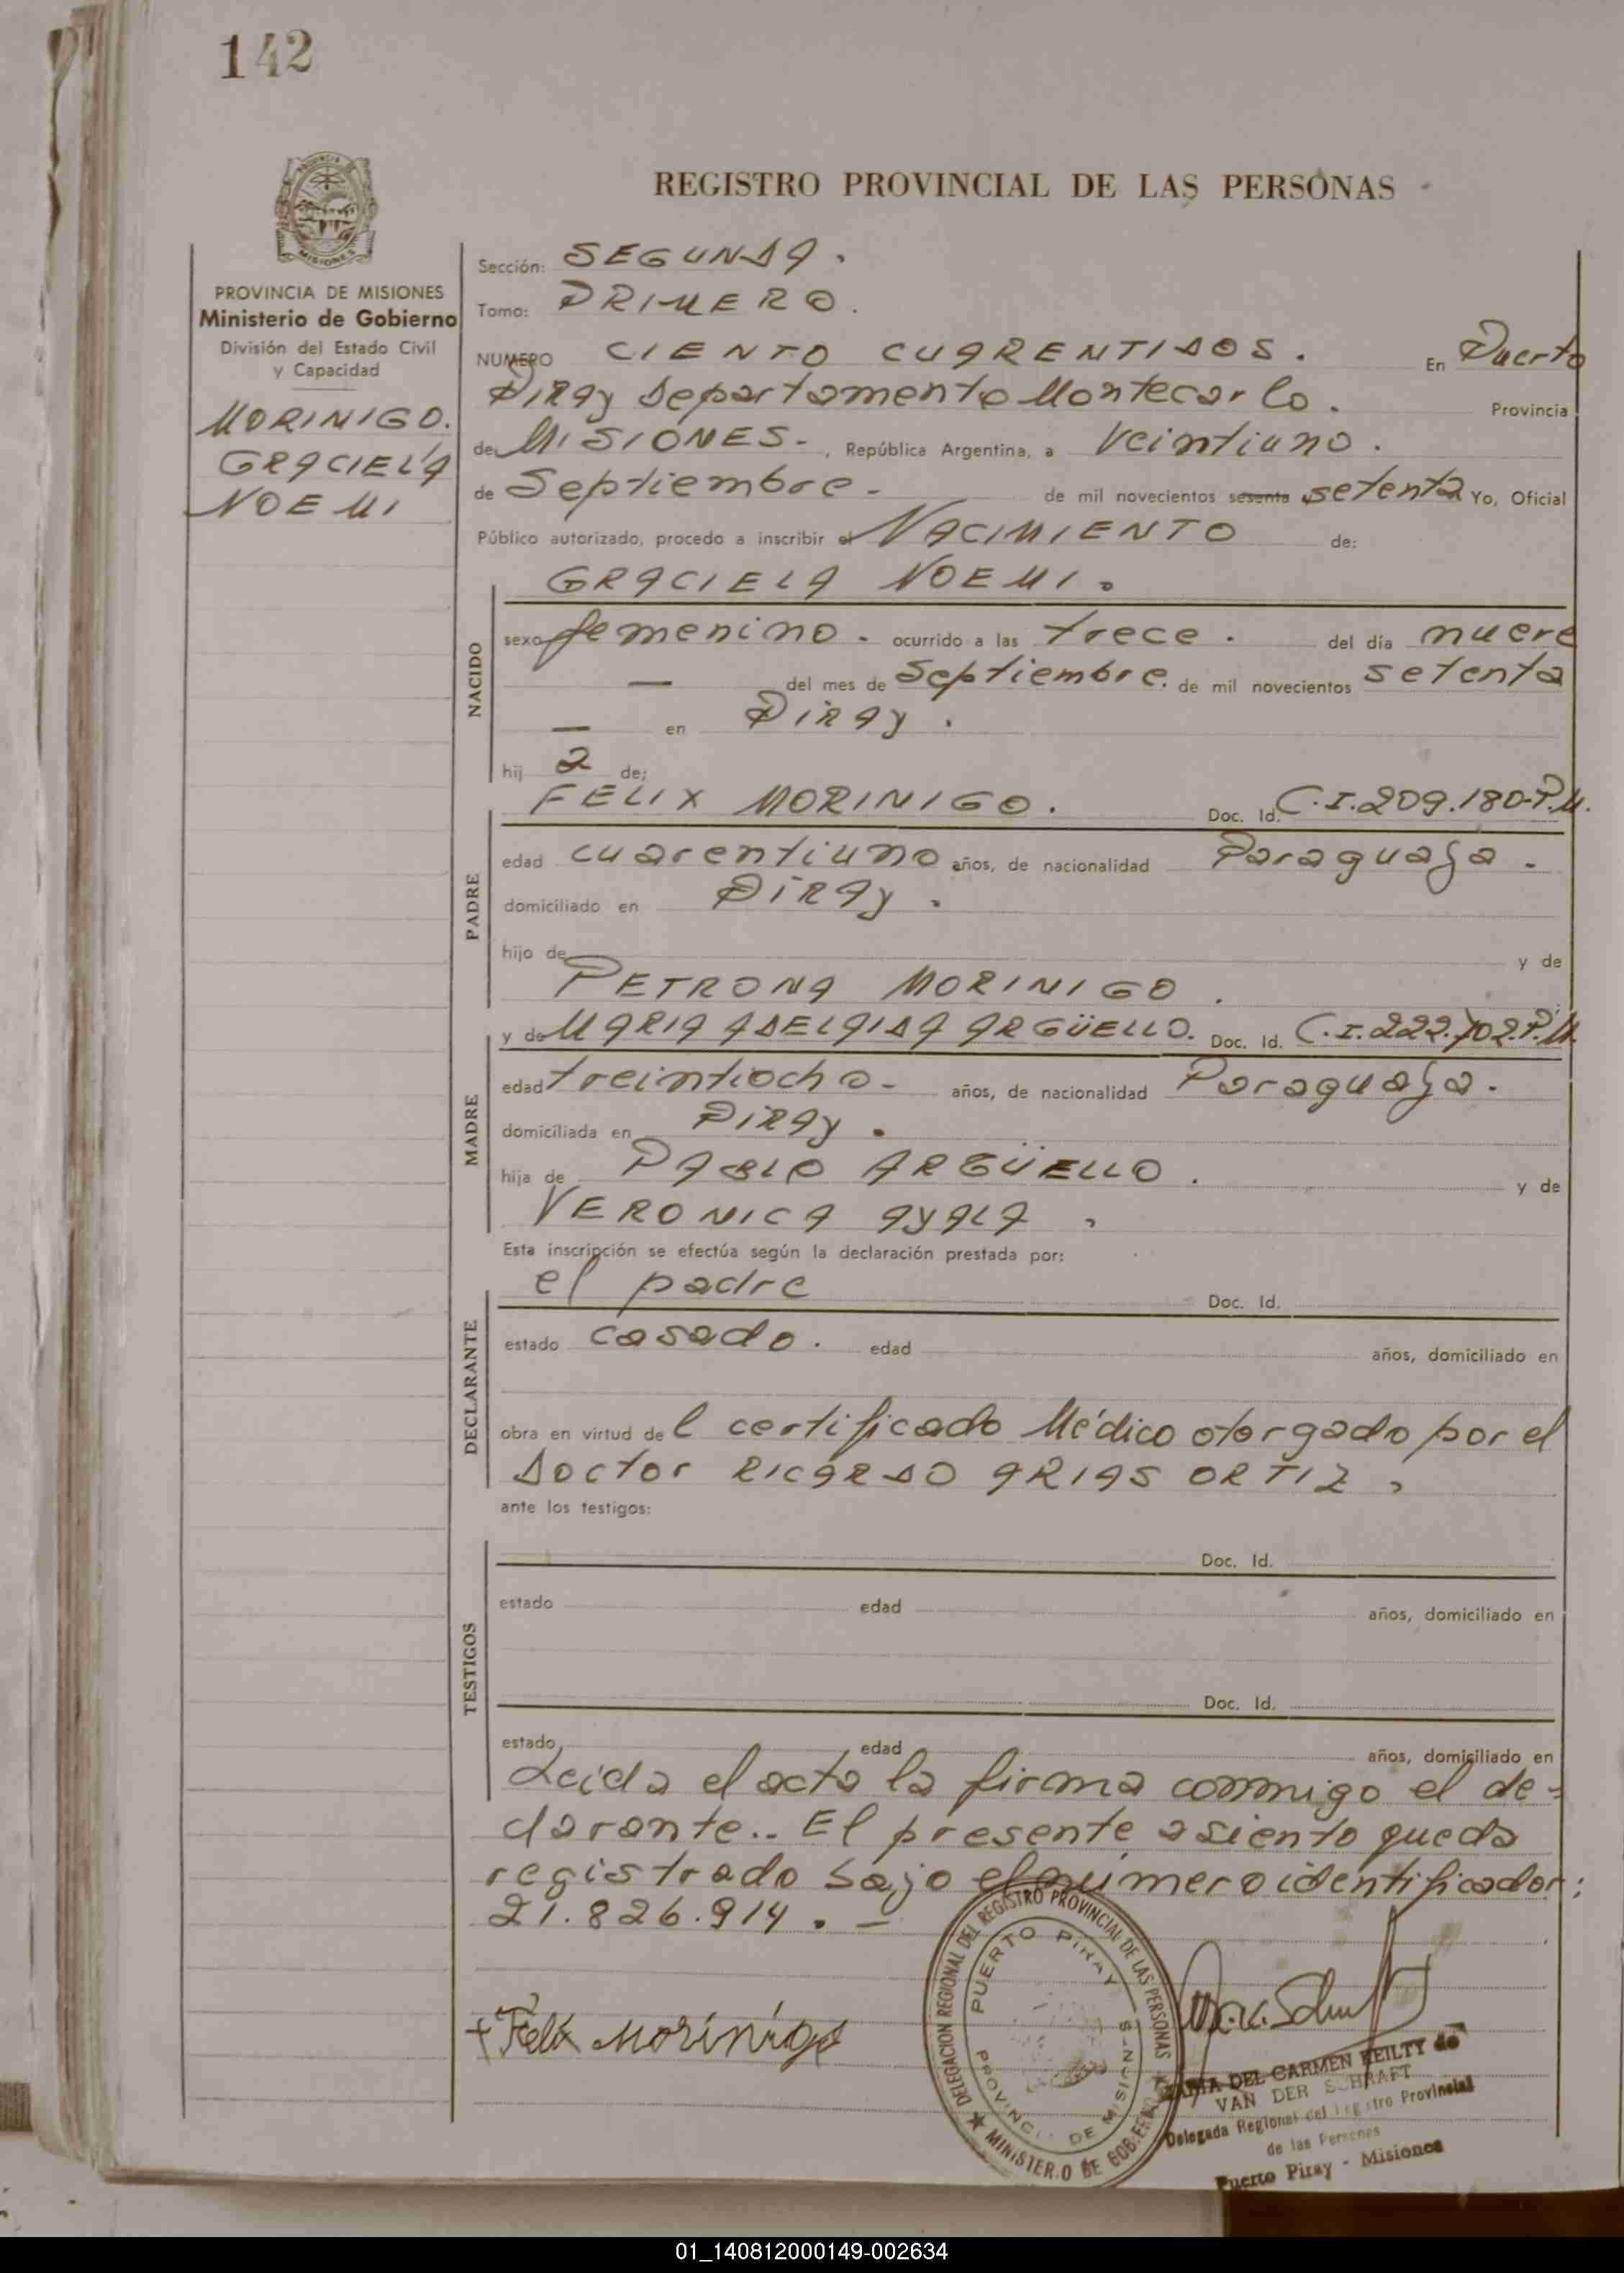 142
REGISTRO PROVINCIAL DE LAS PERSONAS
MISIONES
PROVINCIA DE MISIONES
Ministerio de Gobierno
División del Estado Civil
y Capacidad
MORINIGO.
GRACIELA
NOEMI
Sección: SEGUNDA.
Tomo: PRIMERO.
NUMERO CIENTO CUARENTIDOS. En Puerto
Piray Departamento Montecarlo. Provincia
de MISIONES-, República Argentina, a Veintiuno.
de Septiembre- de mil novecientos sesenta setenta Yo, Oficial
Público autorizado, procedo a inscribir el NACIMIENTO de:
GRACIELA NOEMI.
NACIDO
sexo femenino. ocurrido a las trece. del día nueve
— del mes de Septiembre. de mil novecientos setenta
— en PIRAY.
hij a de;
FELIX MORINIGO. Doc. Id. C.I.209.180-P.M.
PADRE
edad cuarentiuno años, de nacionalidad Paraguaya.
domiciliado en PIRAY.
hijo de y de
PETRONA MORINIGO.
y de MARIA ADELAIDA ARGÜELLO. Doc. Id. C.I.222.702.P.M.
MADRE
edad treintiocho- años, de nacionalidad Paraguaya.
domiciliada en PIRAY.
hija de PABLO ARGÜELLO. y de
VERONICA AYALA,
Esta inscripción se efectúa según la declaración prestada por:
el padre Doc. Id.
DECLARANTE
estado casado. edad años, domiciliado en
obra en virtud de l certificado Médico otorgado por el
Doctor RICARDO ARIAS ORTIZ,
ante los testigos:
Doc. Id.
TESTIGOS
estado edad años, domiciliado en
Doc. Id.
estado edad años, domiciliado en
Leida el acta la firma conmigo el de=
clarante.. El presente asiento queda
registrado bajo el número identificador:
21.826.914.-
+ Felix Morínigo
DELEGACION REGIONAL DEL REGISTRO PROVINCIAL DE LAS PERSONAS
PUERTO PIRAY
PROVINCIA DE MISIONES
MINISTERIO DE GOBIERNO
MARIA DEL CARMEN KEILTY de
VAN DER SCHRAFT
Delegada Regional del Registro Provincial
de las Personas
Puerto Piray - Misiones
01_140812000149-002634